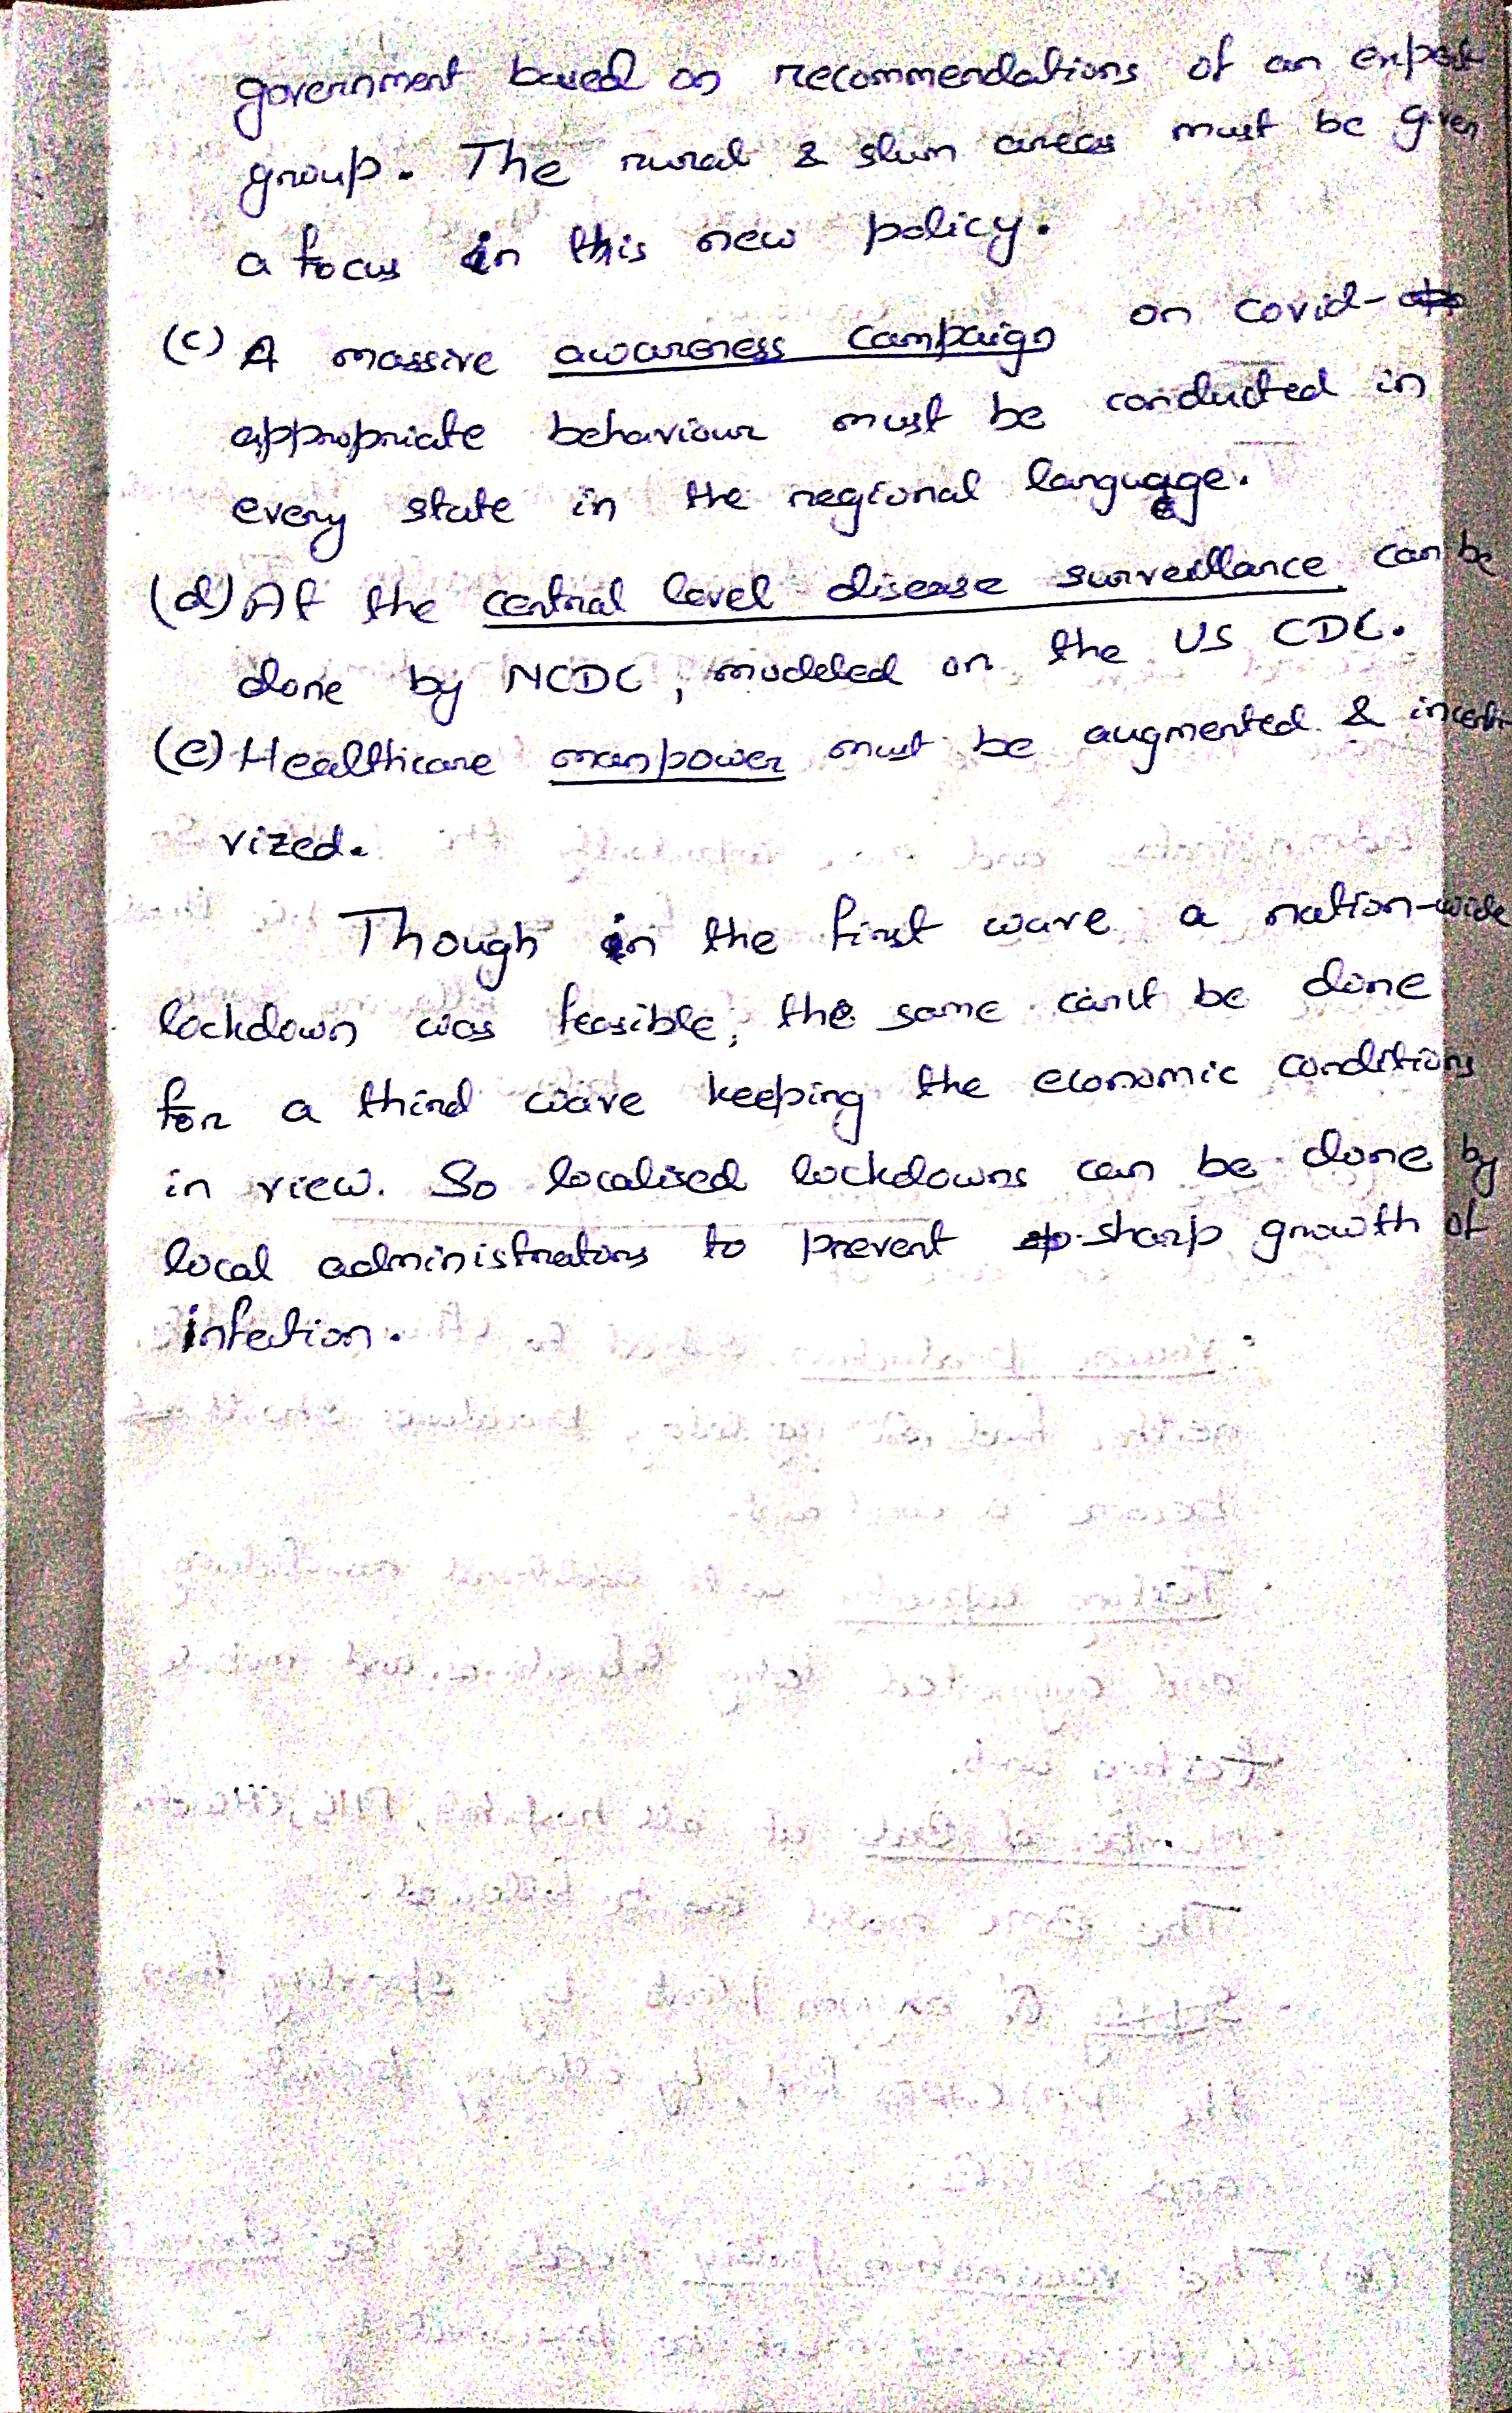 government based on recommendations of an expert
group. The rural & slum areas must be given
a focus in this new policy.
(c) A massive awareness campaign on covid-
appropriate behaviour must be conducted in
every state in the regional language.
(d) At the central level disease surveillance can be
done by NCDC, modeled on the US CDC.
(e) Healthcare manpower must be augmented & incenti-
vized.
Though in the first wave a nation-wide
lockdown was feasible, the same can't be done
for a third wave keeping the economic conditions
in view. So localised lockdowns can be done by
local administrators to prevent sharp growth of
infection.